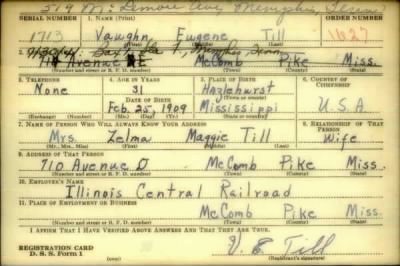 519 McLemore Ave Memphis Tenn
SERIAL NUMBER 1. NAME (Print) ORDER NUMBER
1713 Vaughn Eugene Till 1627
(First) (Middle) (Last)
Memphis, Tenn.
2. 710 Avenue E McComb Pike Miss.
(Number and street or R. F. D. number) (Town) (County) (State)
3. TELEPHONE 4. AGE IN YEARS 5. PLACE OF BIRTH 6. COUNTRY OF CITIZENSHIP
None 31 Hazlehurst
DATE OF BIRTH (Town or county)
Feb. 25, 1909 Mississippi U.S.A
(Exchange) (Number) (Mo.) (Day) (Yr.) (State or country)
7. NAME OF PERSON WHO WILL ALWAYS KNOW YOUR ADDRESS 8. RELATIONSHIP OF THAT PERSON
Mrs. Zelma Maggie Till Wife
(Mr., Mrs., Miss) (First) (Middle) (Last)
9. ADDRESS OF THAT PERSON
710 Avenue D McComb Pike Miss.
(Number and street or R. F. D. number) (Town) (County) (State)
10. EMPLOYER'S NAME
Illinois Central Railroad
11. PLACE OF EMPLOYMENT OR BUSINESS
McComb Pike Miss.
(Number and street or R. F. D. number) (Town) (County) (State)
I AFFIRM THAT I HAVE VERIFIED ABOVE ANSWERS AND THAT THEY ARE TRUE.
REGISTRATION CARD
D. S. S. Form 1 V E Till
(Registrant's signature)